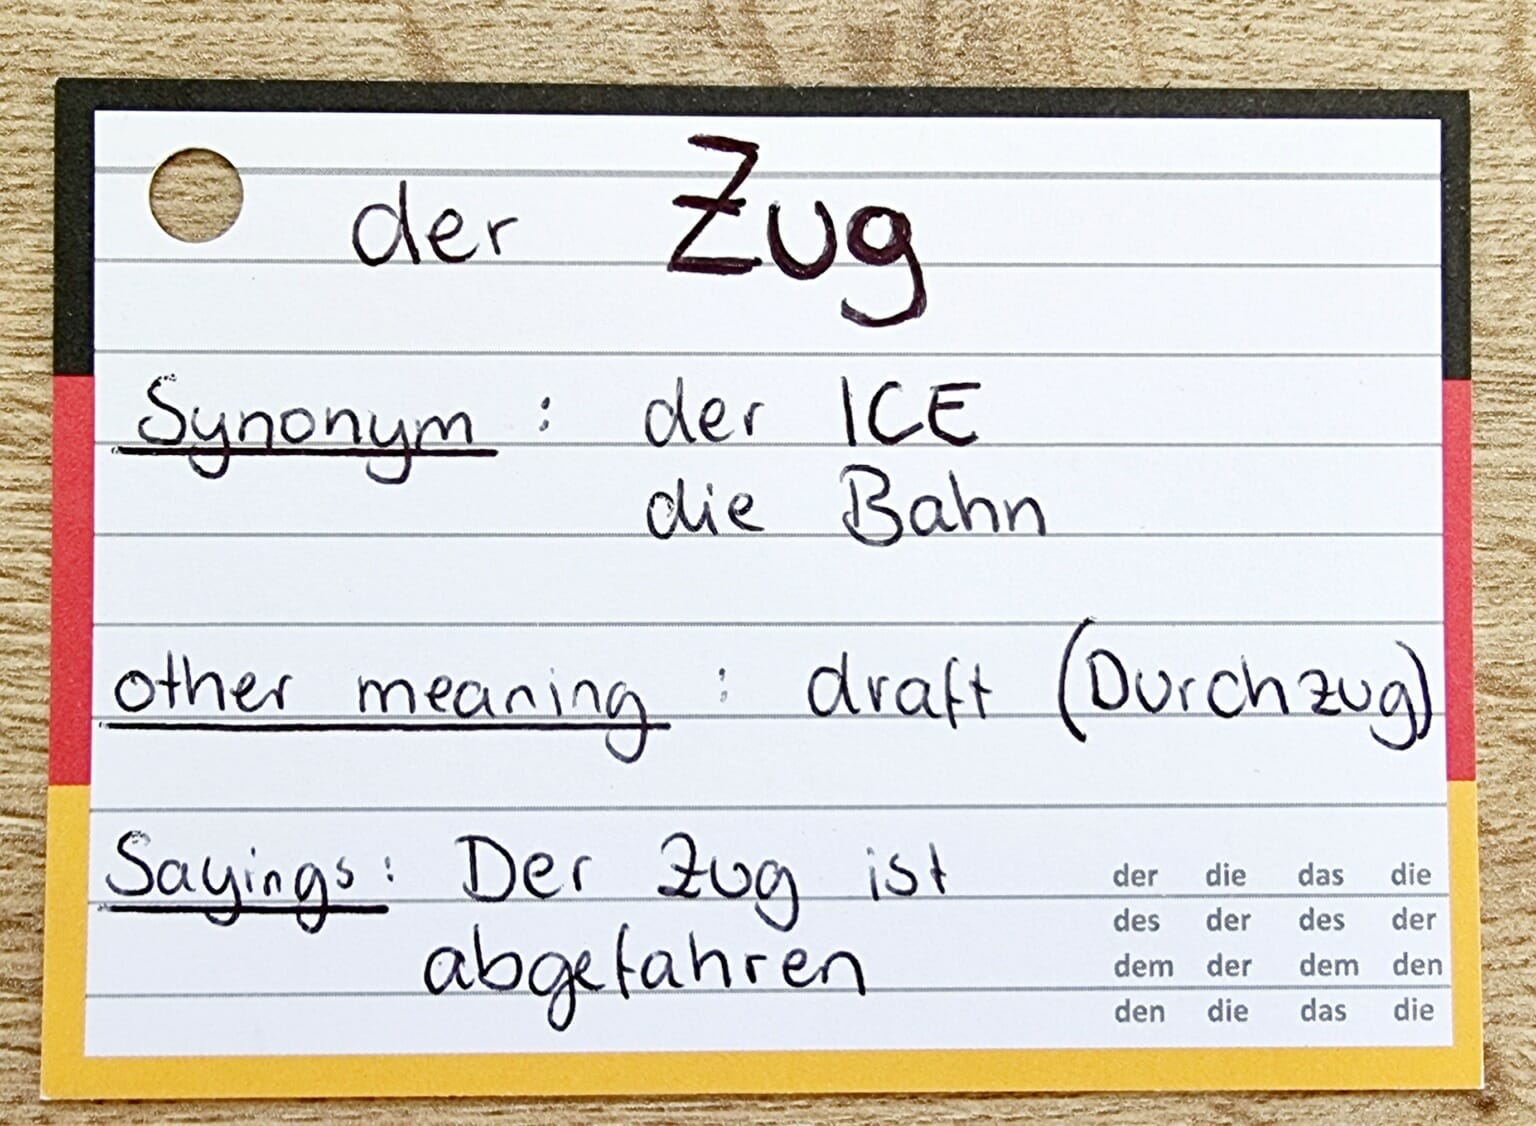 der Zug
Synonym : der ICE
die Bahn
other meaning : draft (Durchzug)
Sayings : Der Zug ist
abgefahren
der die das die
des der des der
dem der dem den
den die das die